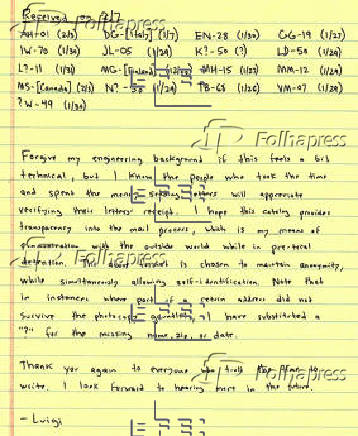 Received on 2/7
AH-01 (2/3) DG-[Italy] (1/7) EN-28 (1/30) GG-19 (1/27)
IW-70 (1/30) JL-05 (1/29) K?-50 (?) LD-50 (1/29)
L?-11 (1/31) MG-[Finland] MH-15 (1/29) MM-12 (1/29)
MS-[Canada] (2/3) N?- (1/29) PB-63 (1/26) YM-07 (1/29)
?W-49 (1/30)
Folhapress
Folhapress
Forgive my engineering background if this feels a bit
technical, but I know the people who took the time
and spent the money sending letters will appreciate
verifying their letters' receipt. I hope this catalog provides
transparency into the mail process, which is my means of
communication with the outside world while in pre-trial
detention. This above format is chosen to maintain anonymity,
while simultaneously allowing self-identification. Note that
in instances where part of a return address did not
survive the photocopy, I have substituted a
"?" for the missing name, zip, or date.
Folhapress
Thank you again to everyone who took the time to
write. I look forward to hearing more in the future.
Folhapress
- Luigi